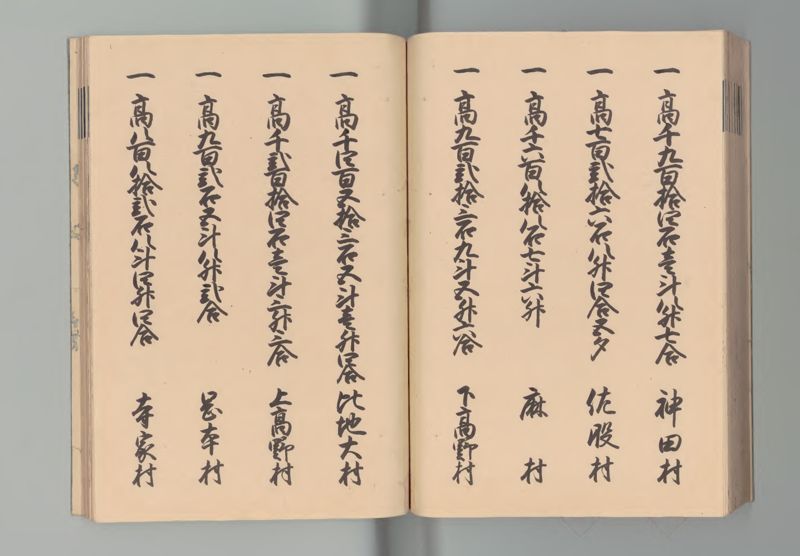 一 高千九百拾四石壱斗八升七合 神田村
一 高七百弐拾六石八升四合五夕 佐股村
一 高千六百八拾八石七斗六升 麻村
一 高九百弐拾三石九斗五升六合 下高野村
一 高千四百五拾三石五斗壱升四合 比地大村
一 高千弐百拾四石壱斗三升三合 上高野村
一 高九百弐石五斗八升弐合 岡本村
一 高八百八拾弐石八斗四升四合 寺家村